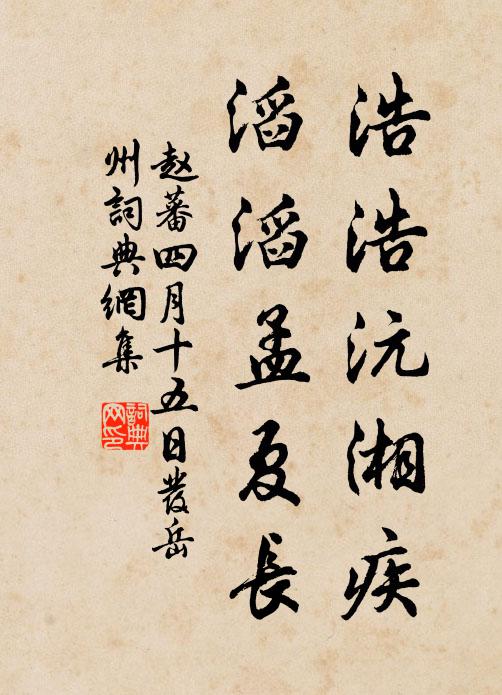 浩浩沅湘疾
滔滔孟夏長
赵蕃四月十五日發岳
州詞典網集
詞典
网印